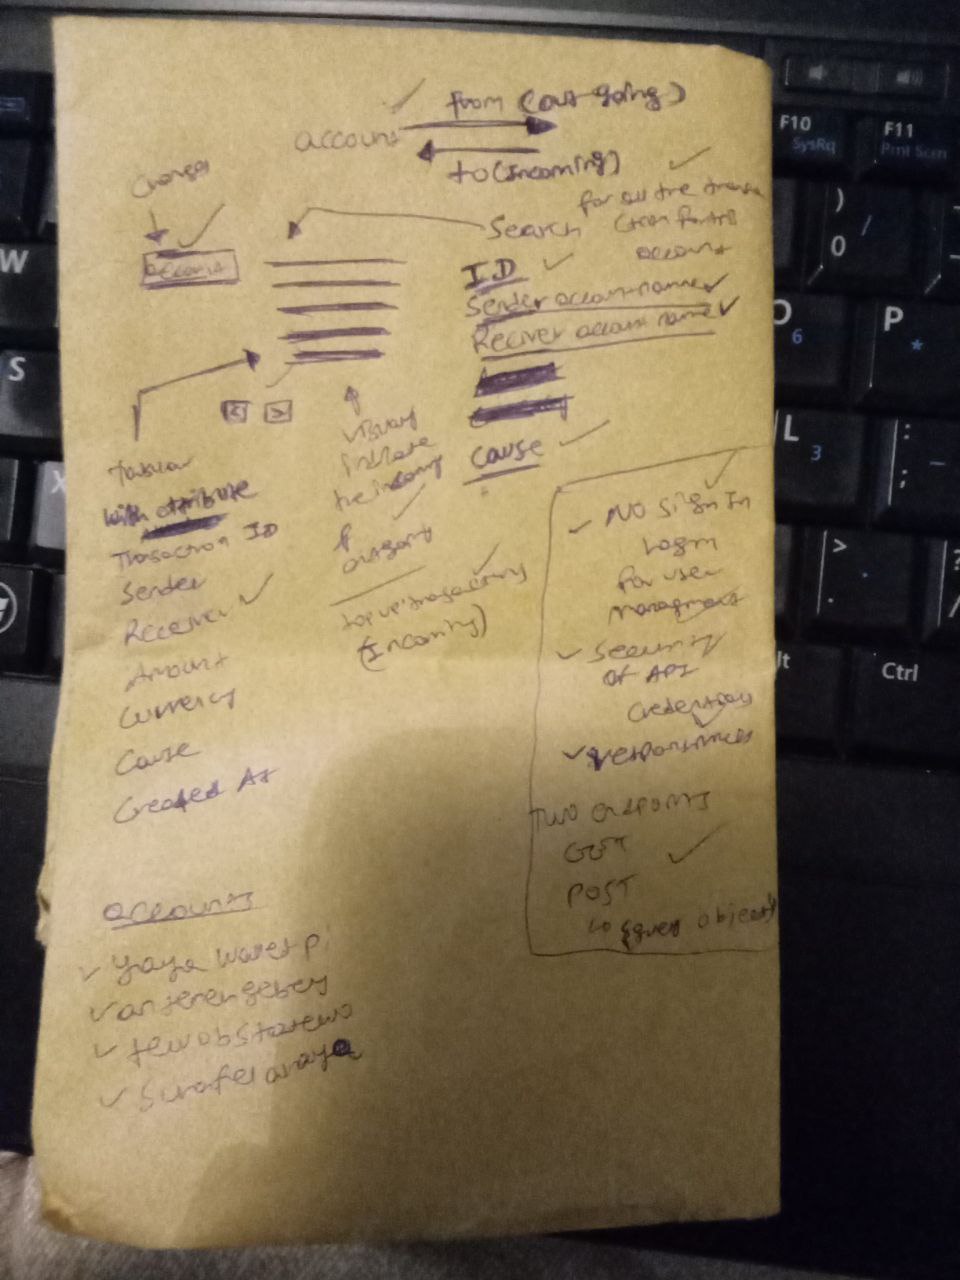 from (out going)
account
to (Incoming)
Change
account
Search
for all the transa
ction for this
account
I.D
Sender account name
Reciver account name
cause
< >
Tabular
with attribute
Transaction ID
Sender
Receiver
Amount
Currency
Cause
Created At
visualy
indicate
the incoming
&
outgoing
top up transactiong
(Incoming)
No Sign In
Login
for user
managment
Security
of API
Credentials
responsivness
Two endpoint
GET
POST
query object
accounts
yaya wallet pi
antenengebey
tewobstatewo
surafelaraya
F10
SysRq
F11
Prnt Scrn
W
)
0
/
O
6
P
*
S
L
3
:
;
-
X
>
.
?
/
Ctrl